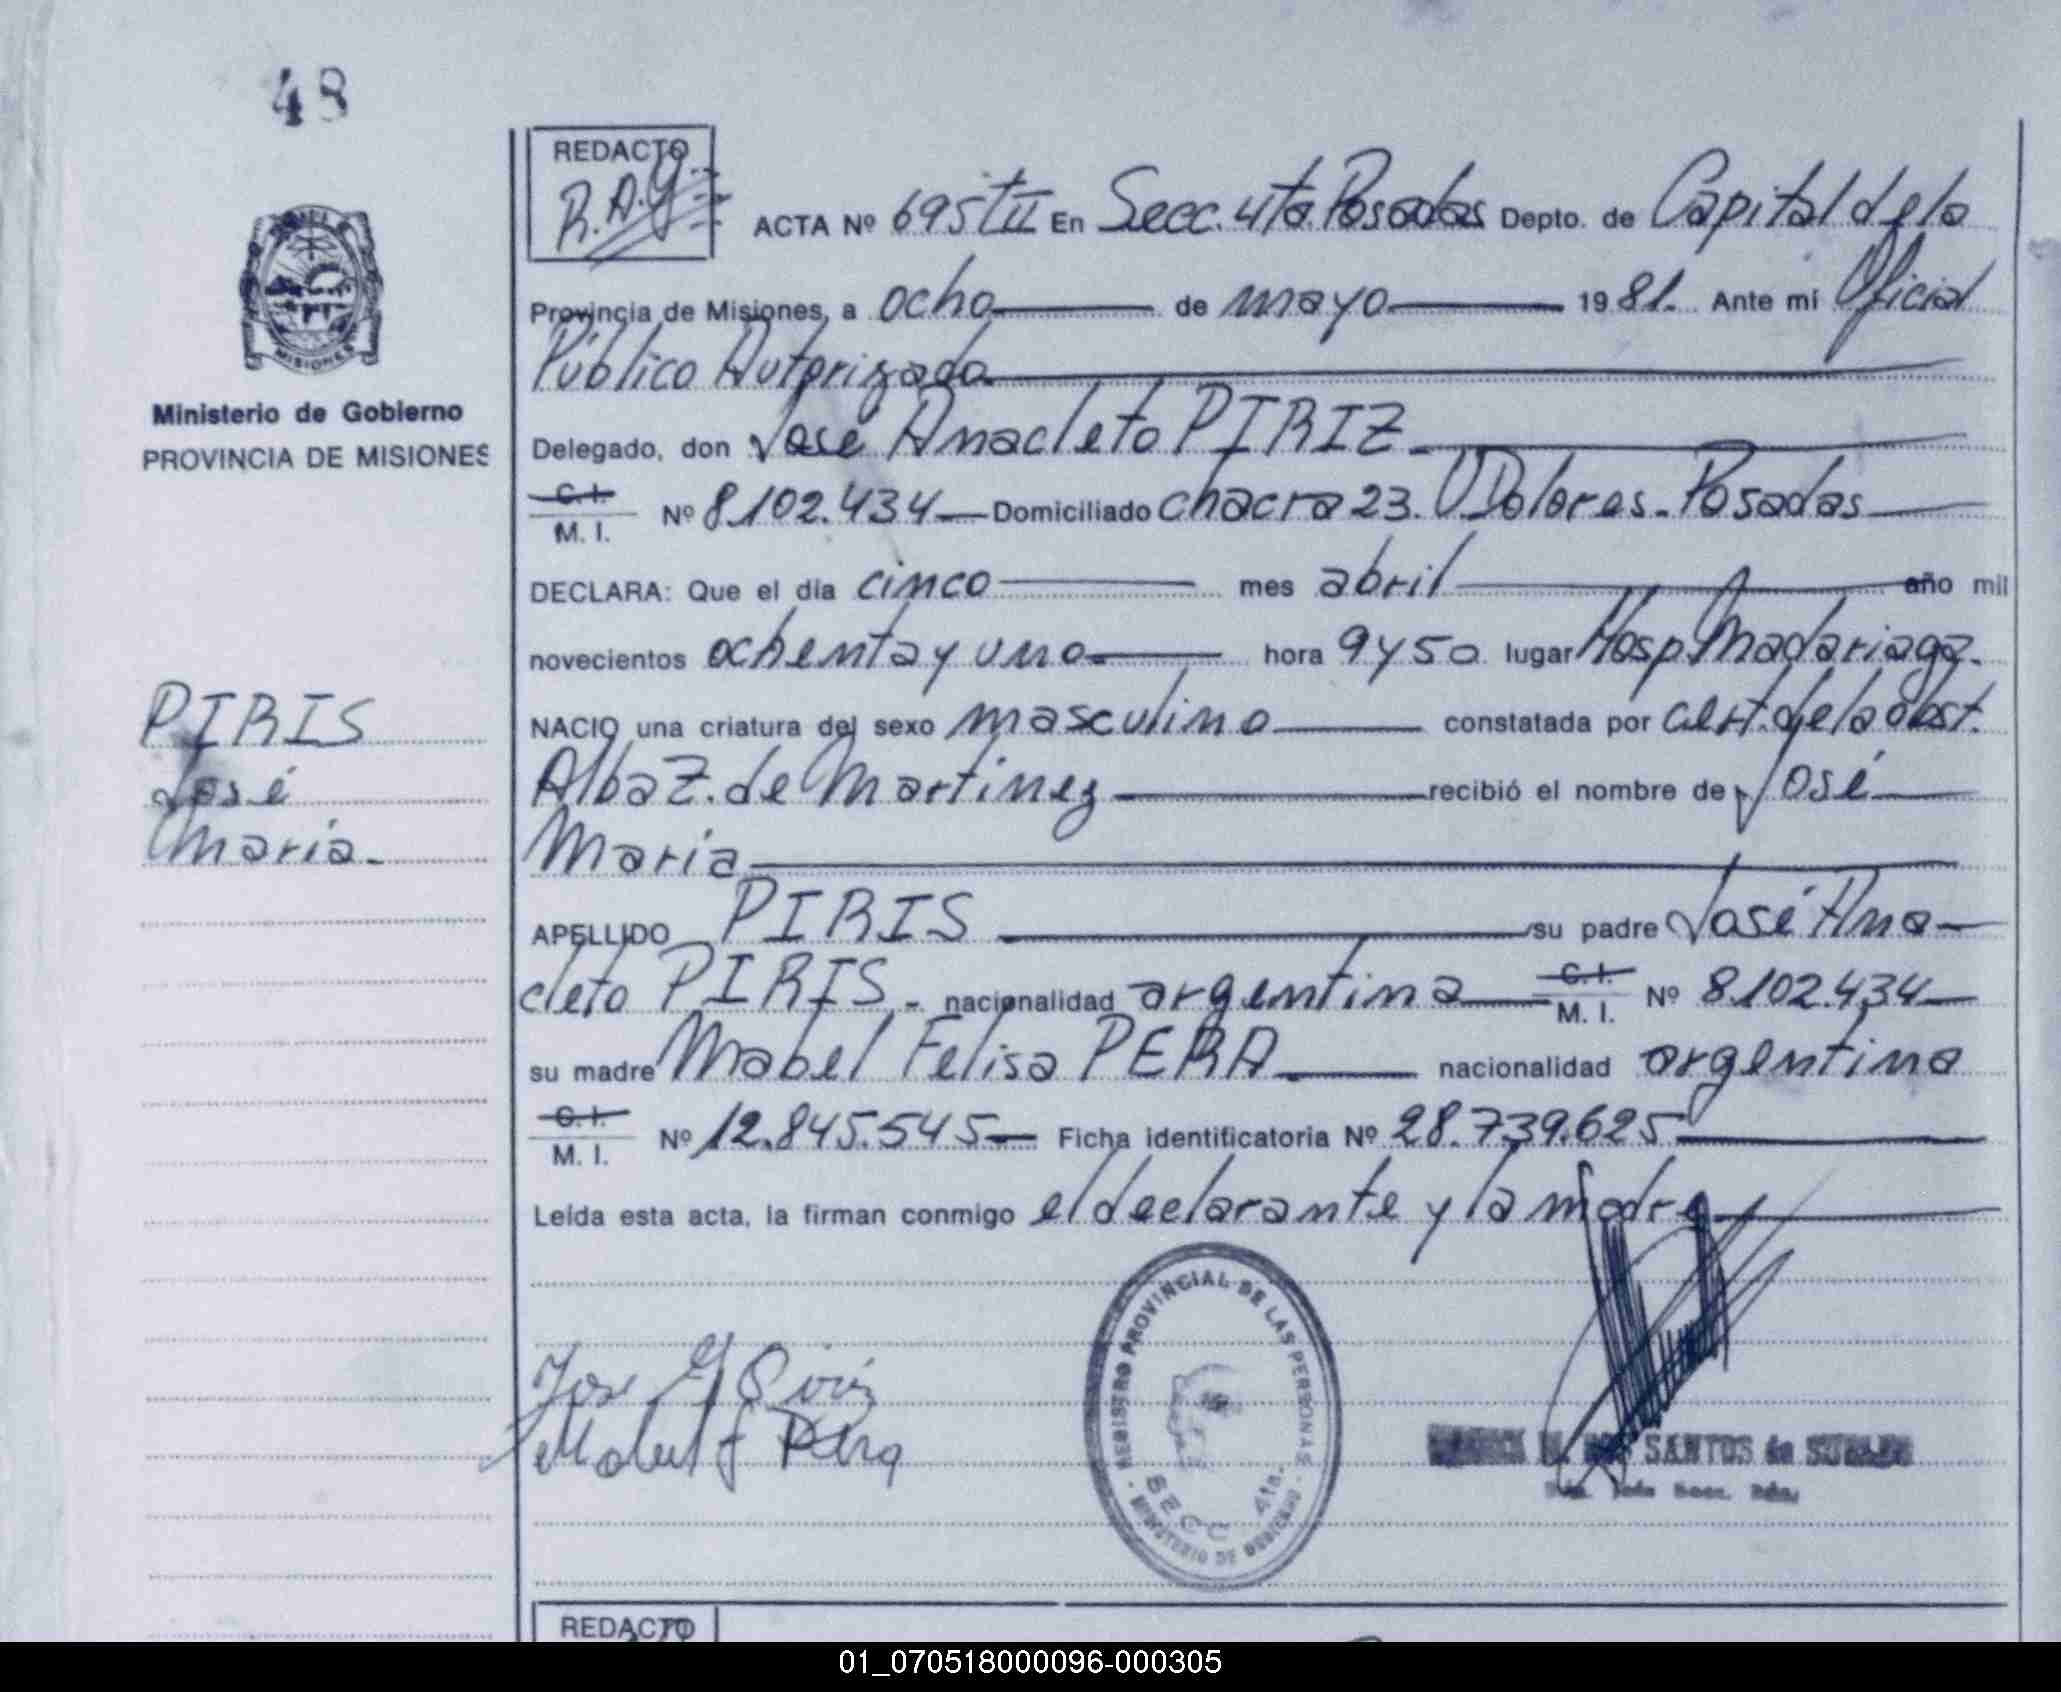 48
REDACTO
R.A.G.
ACTA Nº 695 TII En Secc. 4ta. Posadas Depto. de Capital de la
Provincia de Misiones, a ocho de mayo 1981. Ante mi Oficial
Público Autorizado
Delegado, don José Anacleto PIRIZ
C. I.
M. I. Nº 8.102.434 Domiciliado chacra 23. V Dolores - Posadas
DECLARA: Que el día cinco mes abril año mil
novecientos ochenta y uno hora 9 y 50 lugar Hosp. Madariaga.
NACIO una criatura del sexo masculino constatada por cert. de la obst.
Alba Z. de Martinez recibió el nombre de José
Maria
APELLIDO PIRIS su padre José Ana-
cleto PIRIS - nacionalidad argentina C. I. M. I. Nº 8.102.434
su madre Mabel Felisa PERA nacionalidad argentina
C. I.
M. I. Nº 12.845.545 Ficha identificatoria Nº 28.739.625
Leída esta acta, la firman conmigo el declarante y la madre
Ministerio de Gobierno
PROVINCIA DE MISIONES
MISIONES
PIRIS
José
Maria.
Jose
Mabel F Pera
REGISTRO PROVINCIAL DE LAS PERSONAS
SECC 4ta.
MINISTERIO DE GOBIERNO
SANTOS de
REDACTO
01_070518000096-000305